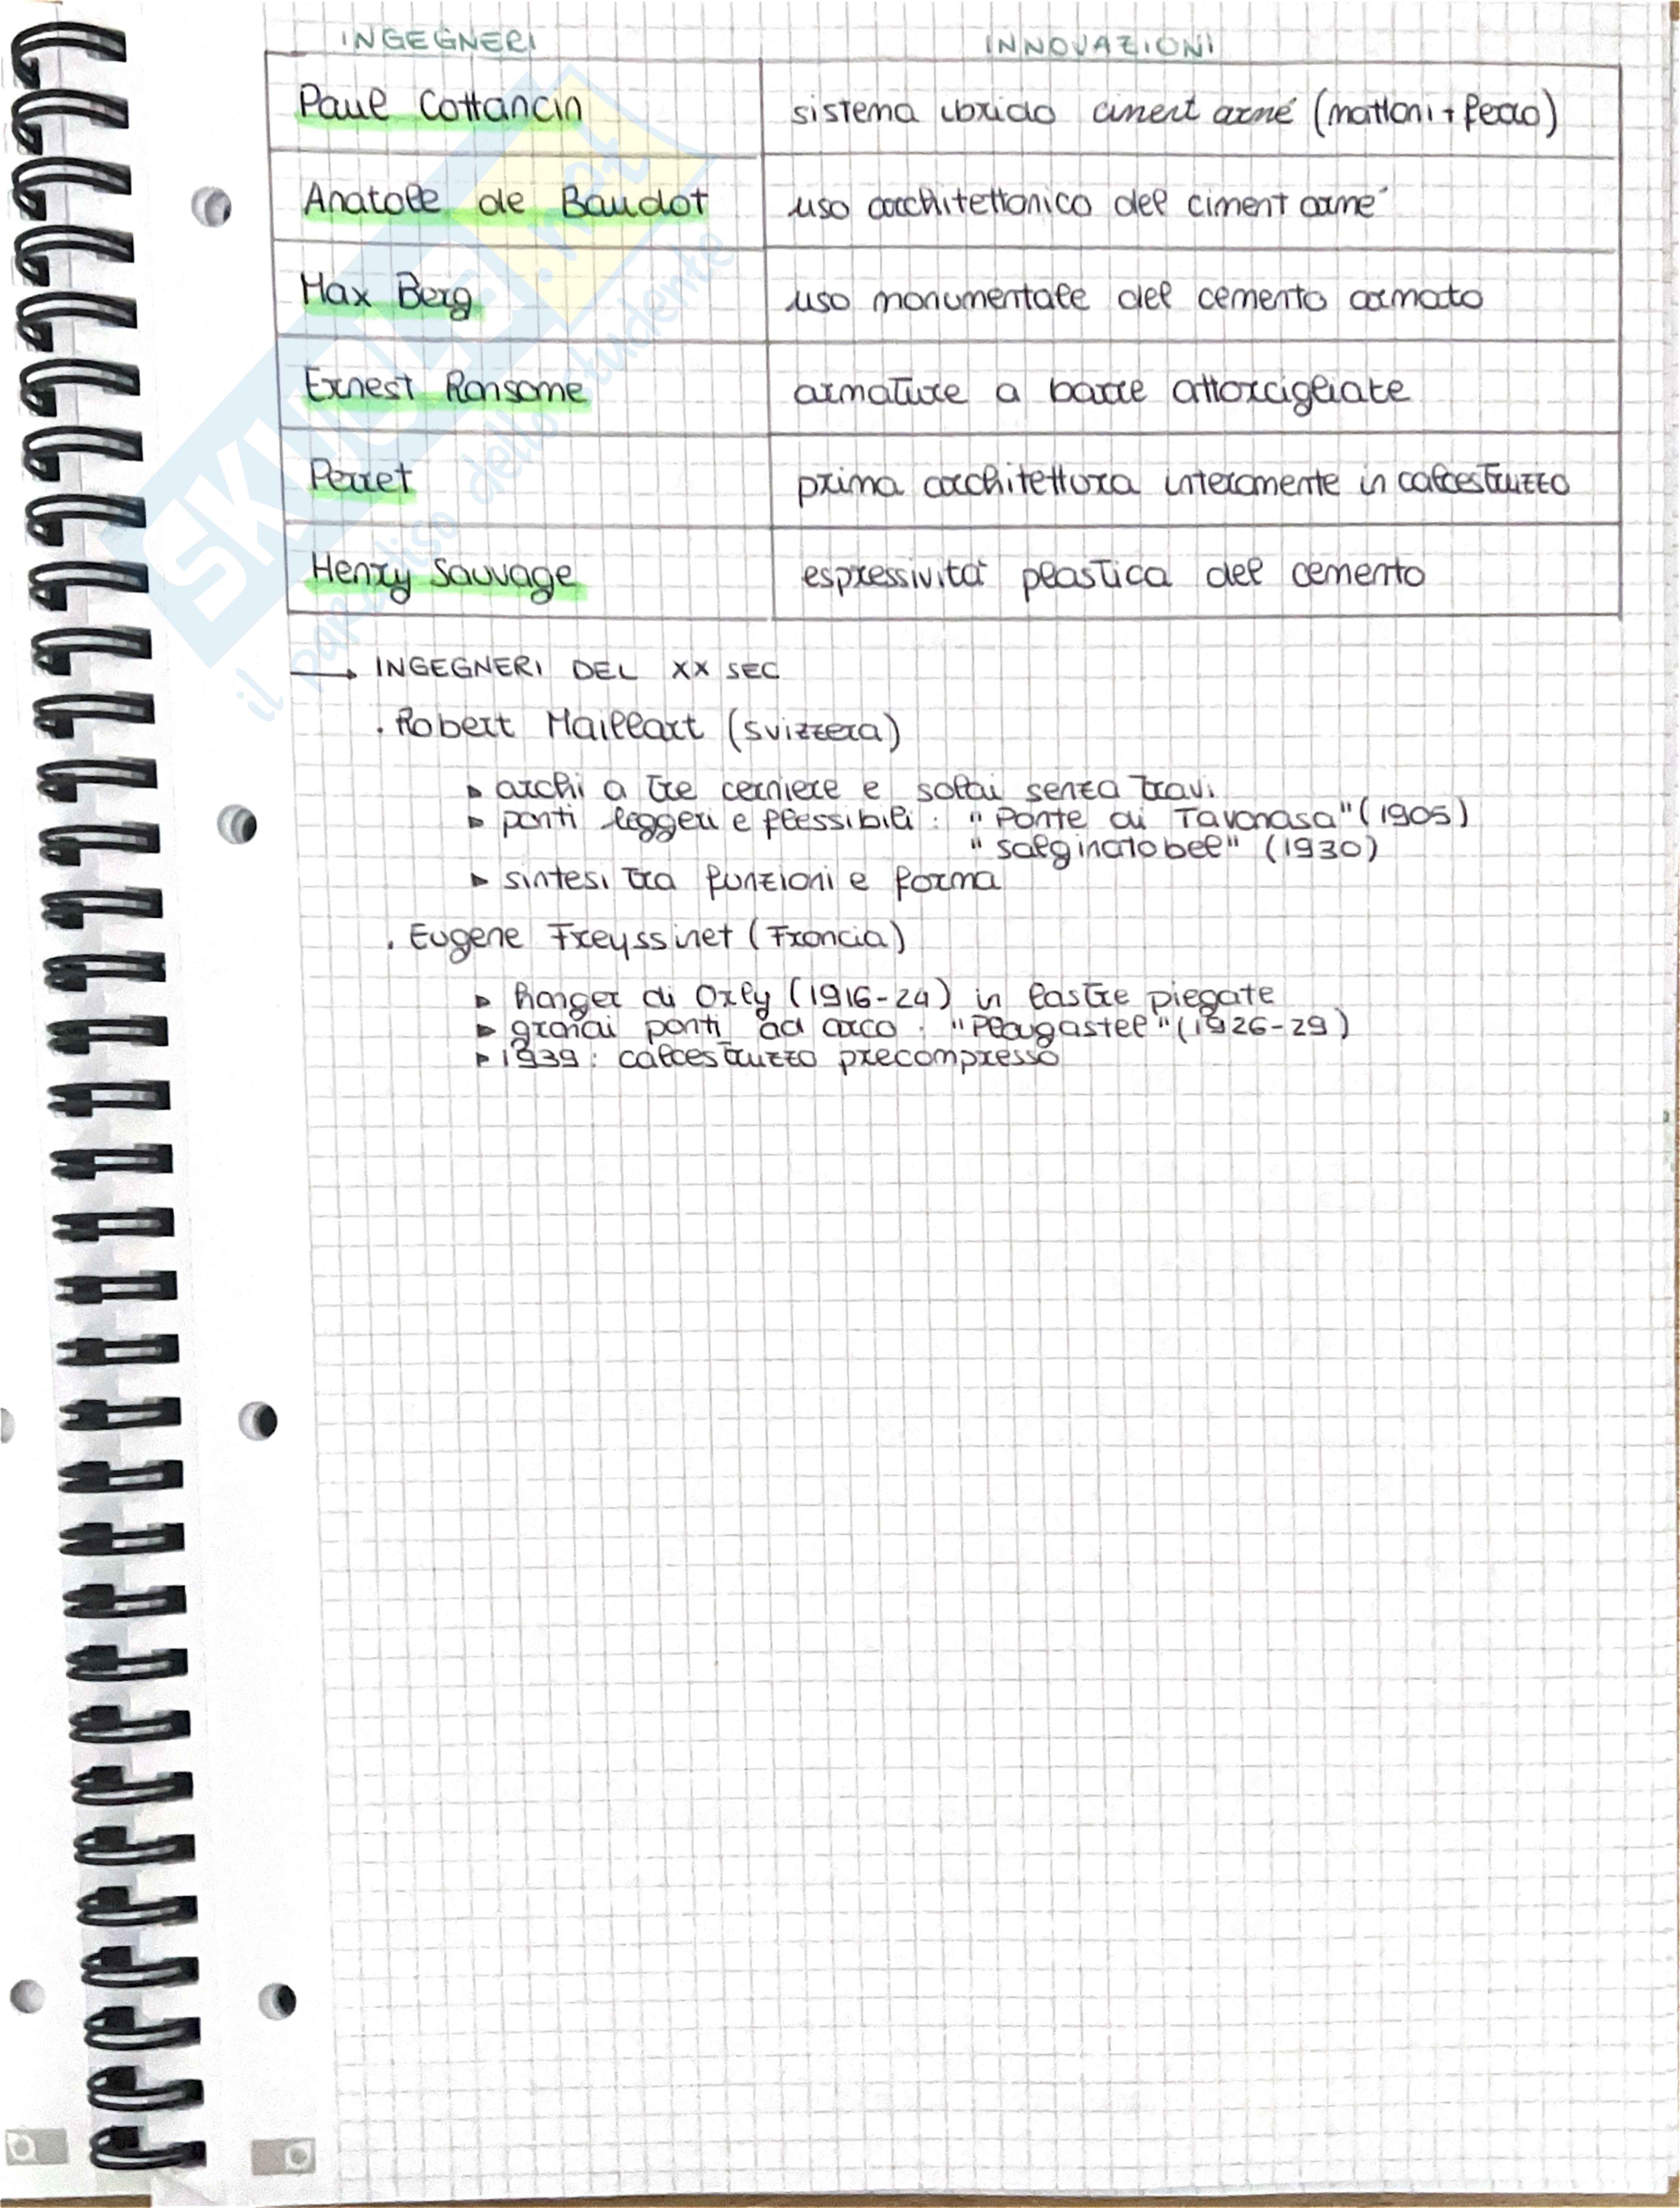 INGEGNERI INNOVAZIONI
Paul Cottancin sistema ibrido ciment armé (mattoni + ferro)
Anatole de Baudot uso architettonico del ciment armé
Max Berg uso monumentale del cemento armato
Ernest Ransome armature a barre attorcigliate
Perret prima architettura interamente in calcestruzzo
Henry Sauvage espressività plastica del cemento
→ INGEGNERI DEL XX SEC
. Robert Maillart (svizzera)
▸ archi a tre cerniere e solai senza travi
▸ ponti leggeri e flessibili : "Ponte di Tavanasa" (1905)
"salginatobel" (1930)
▸ sintesi tra funzioni e forma
. Eugene Freyssinet (Francia)
▸ hangar di Orly (1916-24) in lastre piegate
▸ grandi ponti ad arco : "Plaugastel" (1926-29)
▸ 1939 : calcestruzzo precompresso
SKUOLA.net
il paradiso dello studente